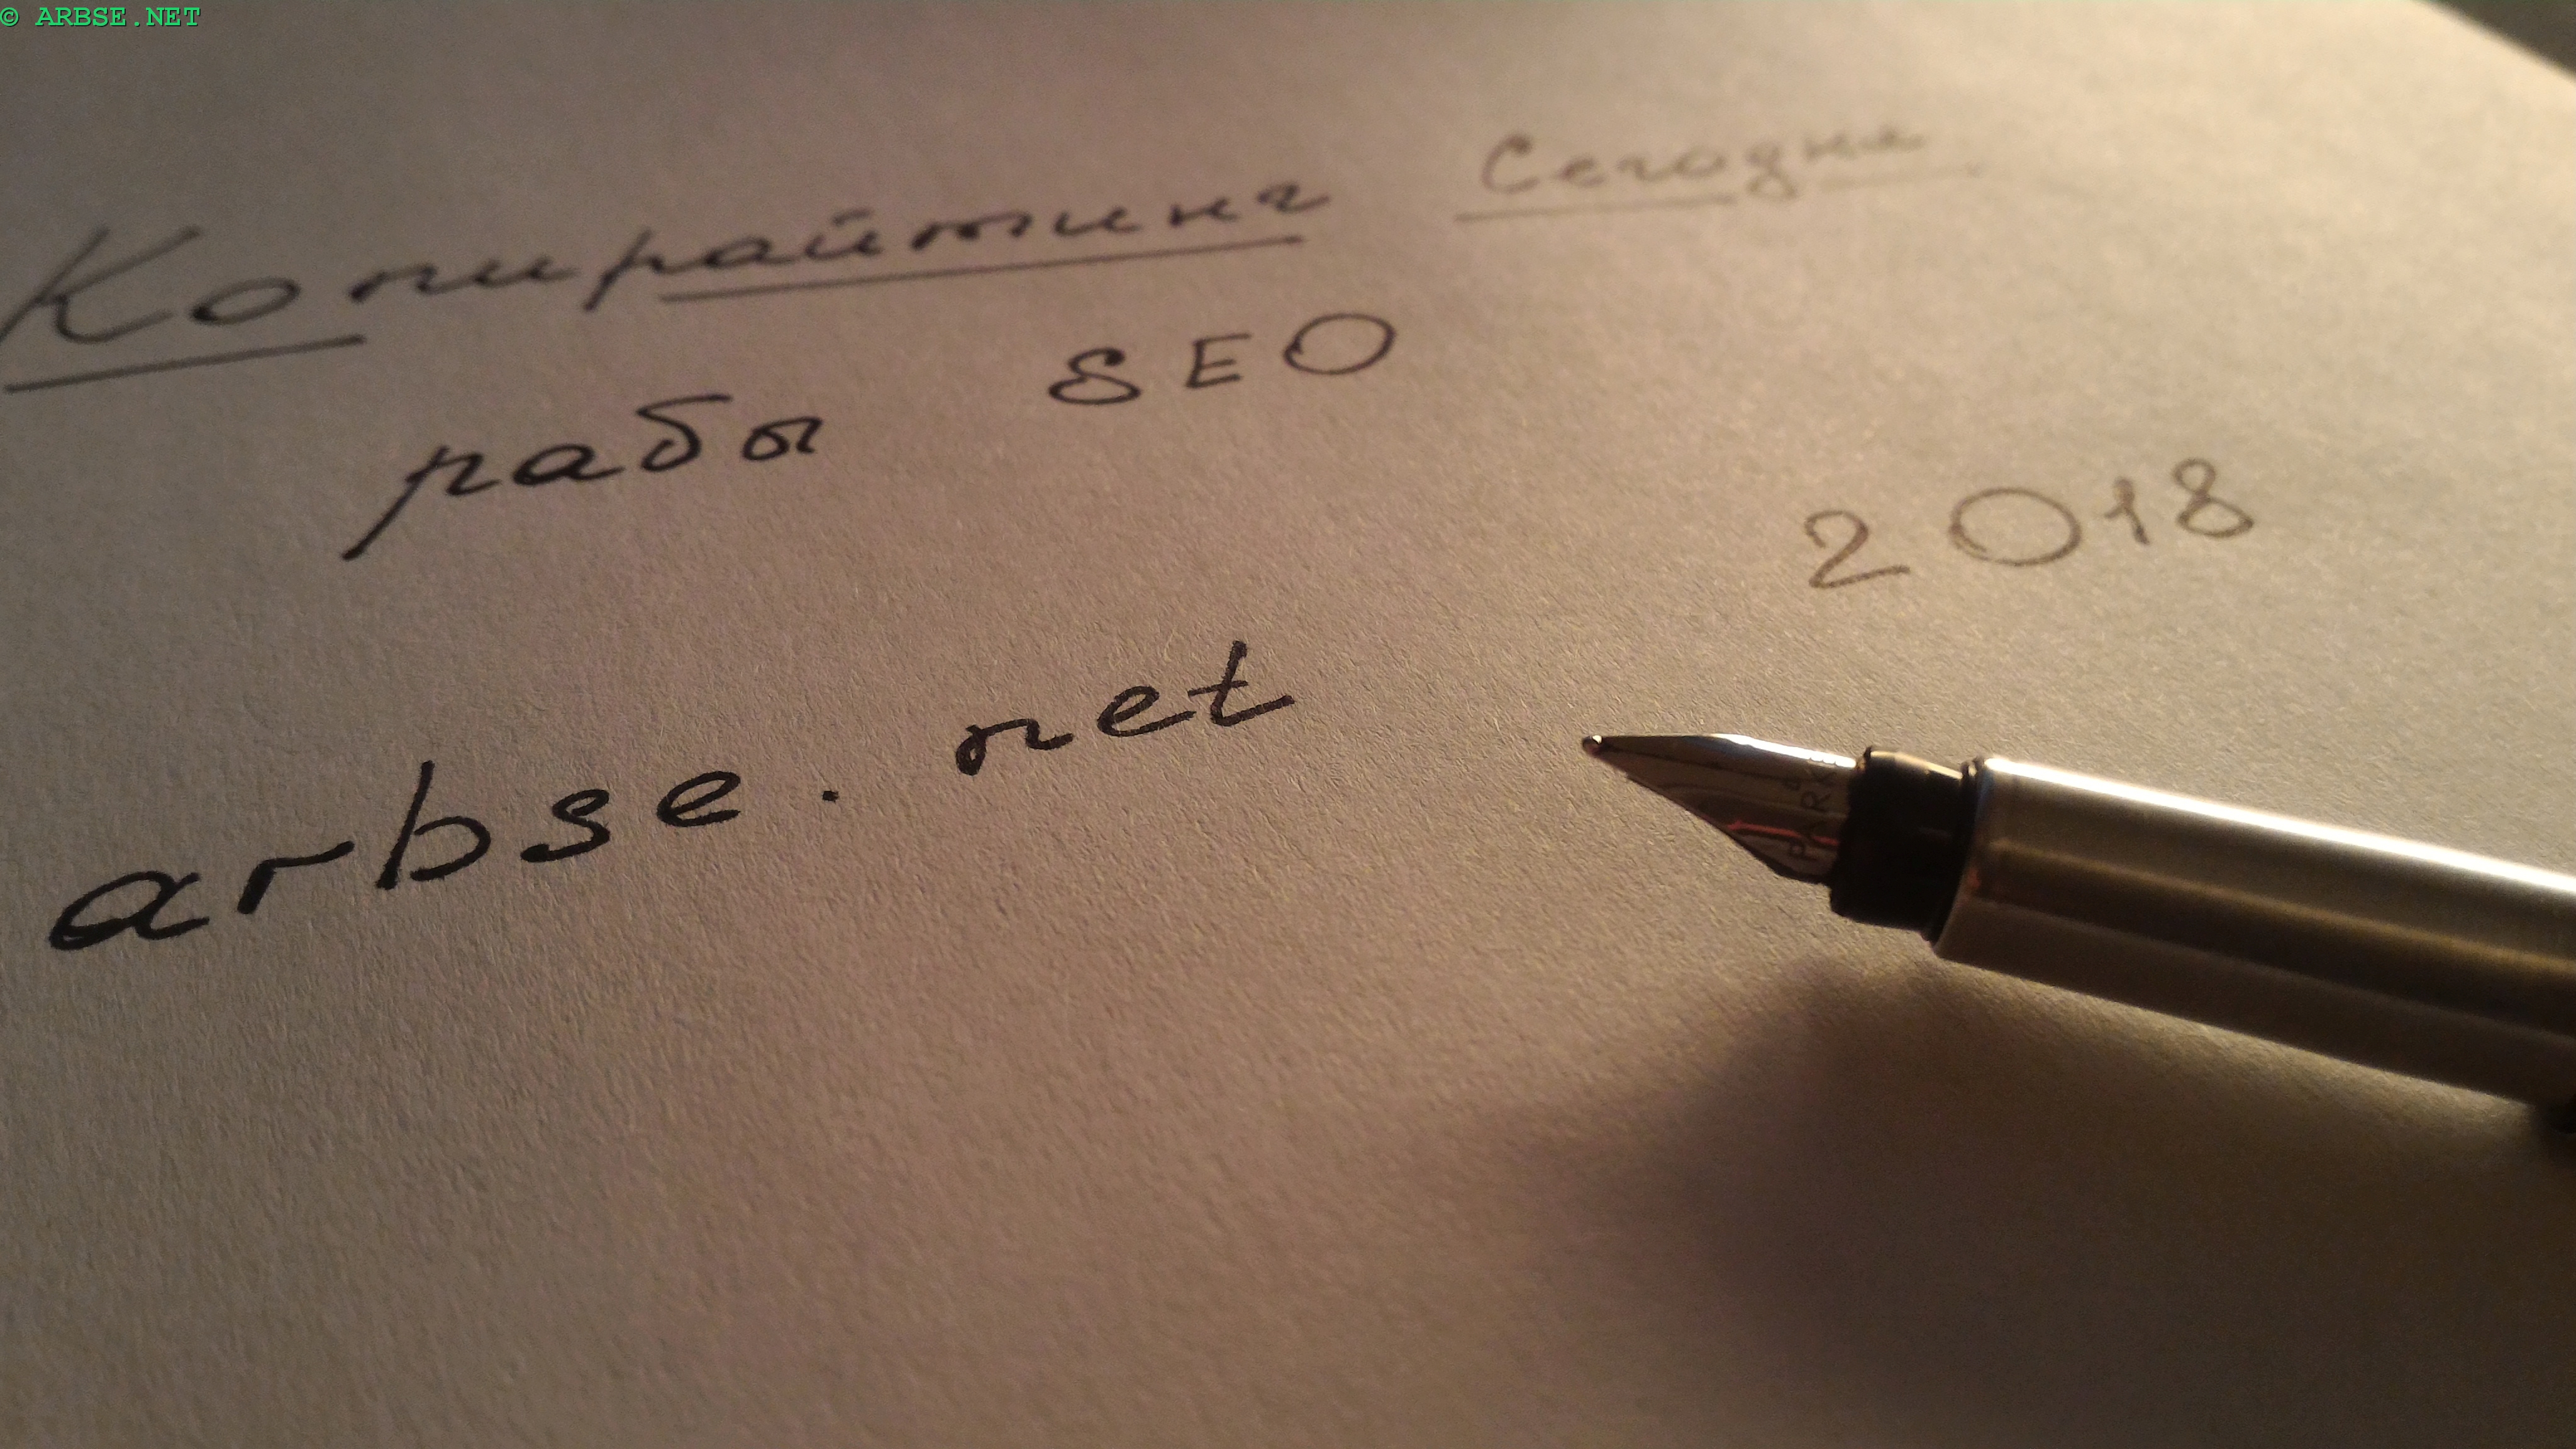 © ARBSE.NET
Копирайтинг Сегодня
рабы SEO
2018
arbse.net
PARKER